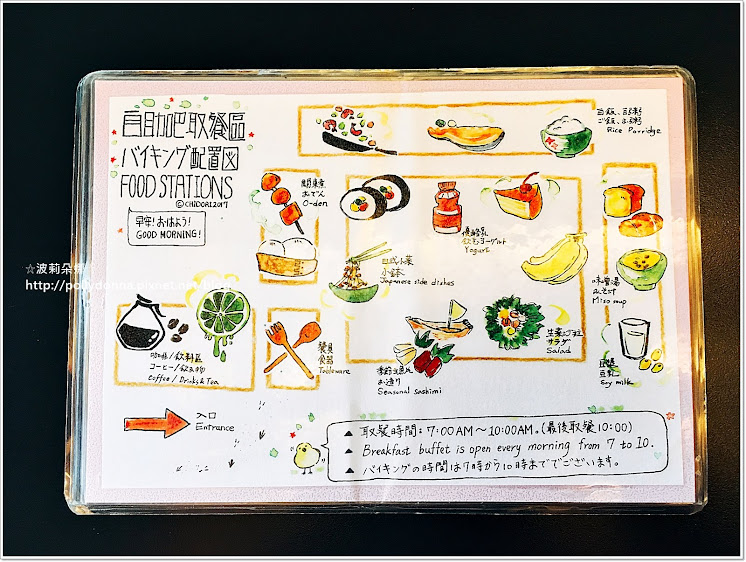 自助吧取餐區
バイキング配置図
FOOD STATIONS
©CHiDORI2017
早安! おはよう!
GOOD MORNING!
白飯、白粥
ご飯、お粥
Rice Porridge
關東煮
おでん
O-den
優酪乳
飲むヨーグルト
Yogurt
日式小菜
小鉢
Japanese side dishes
味噌湯
みそ汁
Miso soup
生菜沙拉
サラダ
Salad
季節生魚片
お造り
Seasonal sashimi
豆漿
豆乳
Soy milk
餐具
食器
Tableware
咖啡/飲料區
コーヒー/飲み物
Coffee / Drinks & Tea
入口
Entrance
▲ 取餐時間：7:00AM～10:00AM.(最後取餐10:00)
▲ Breakfast buffet is open every morning from 7 to 10.
▲ バイキングの時間は7時から10時まででございます。
☆波莉朵娜
http://pollydonna.pixnet.net/blog